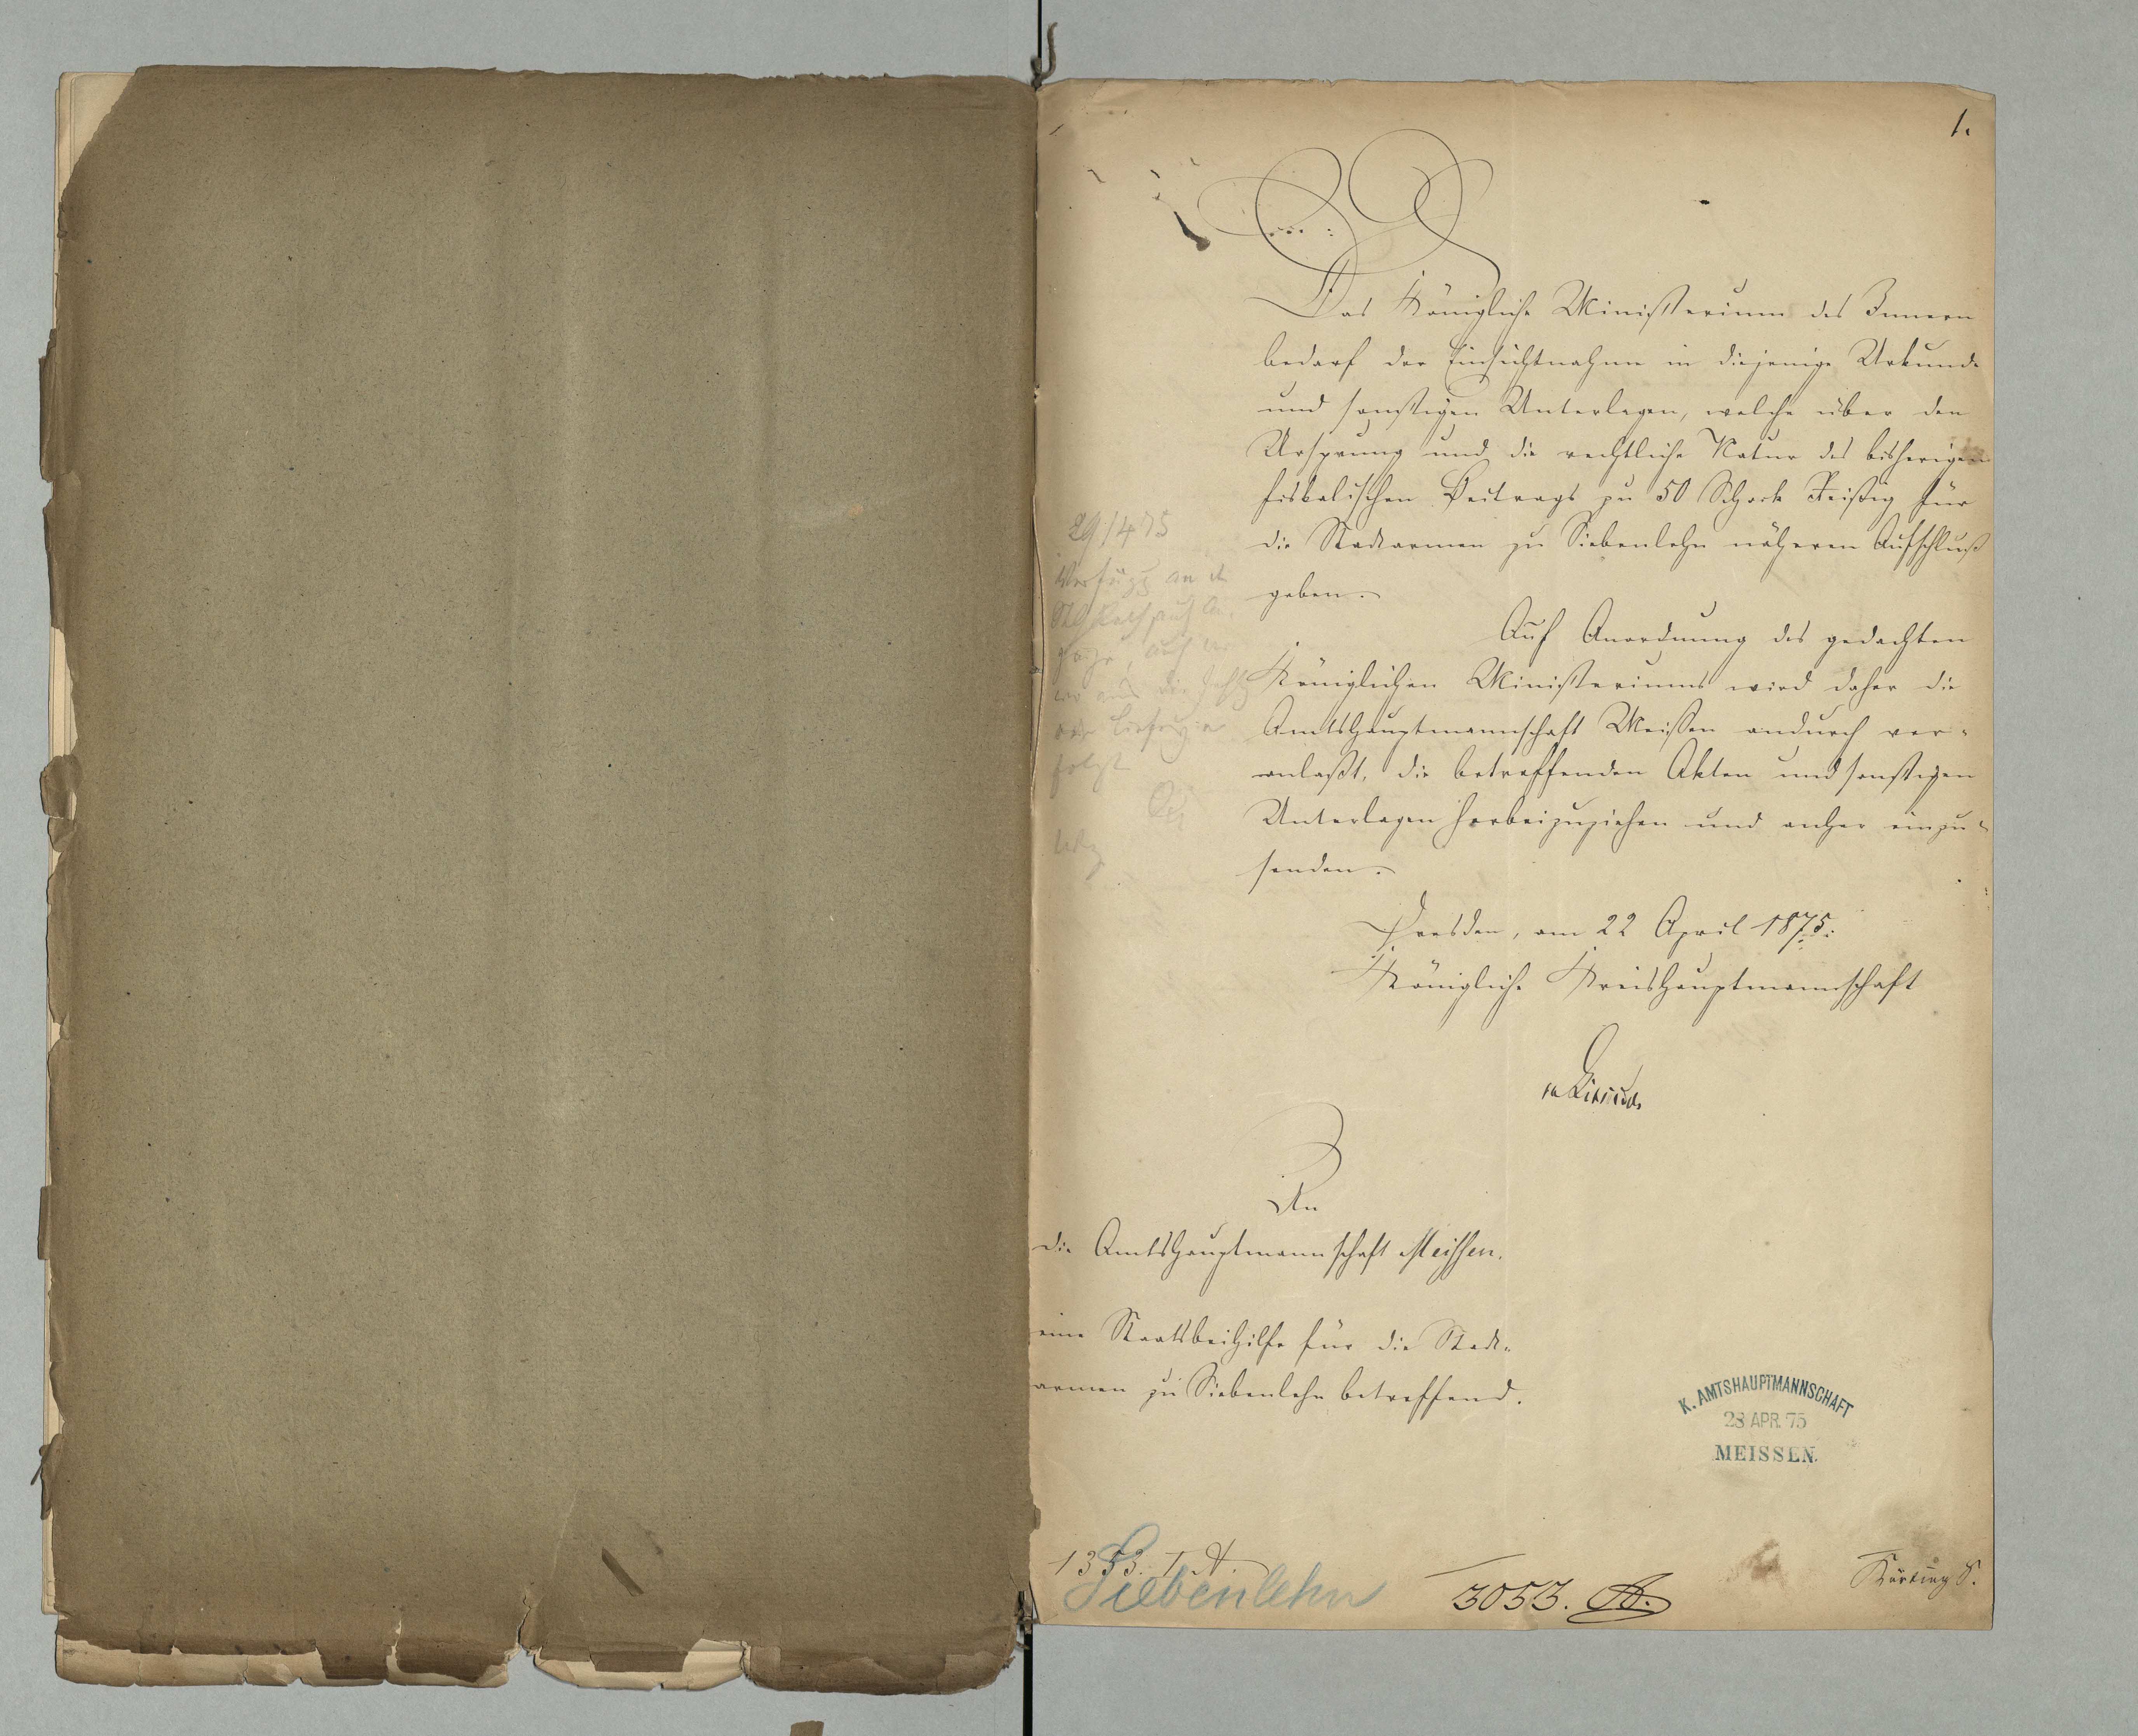 1.
Das Königliche Ministerium des Innern
bedarf der Einsichtnahme in diejenige Urkunde
und sonstigen Unterlagen, welche über den
Ursprung und die rechtliche Natur des bisherigen
fiskalischen Beitrags zu 50 Schock Reißig für
die Stadtarmen zu Siebenlehn näheren Aufschluß
geben.
Auf Anordnung des gedachten
Königlichen Ministeriums wird daher die
Amtshauptmannschaft Meißen andurch ver-
anlaßt, die betreffenden Akten und sonstigen
Unterlagen herbeizuziehen und anher einzu-
senden.
Dresden, am 22 April 1875.
Königliche Kreishauptmannschaft
29/4 75
An
die Amtshauptmannschaft Meissen.
eine Staatsbeihilfe für die Stadt-
armen zu Siebenlehn betreffend.
K. AMTSHAUPTMANNSCHAFT
28 APR. 75
MEISSEN.
1353. I A.
Siebenlehn
3053. A.